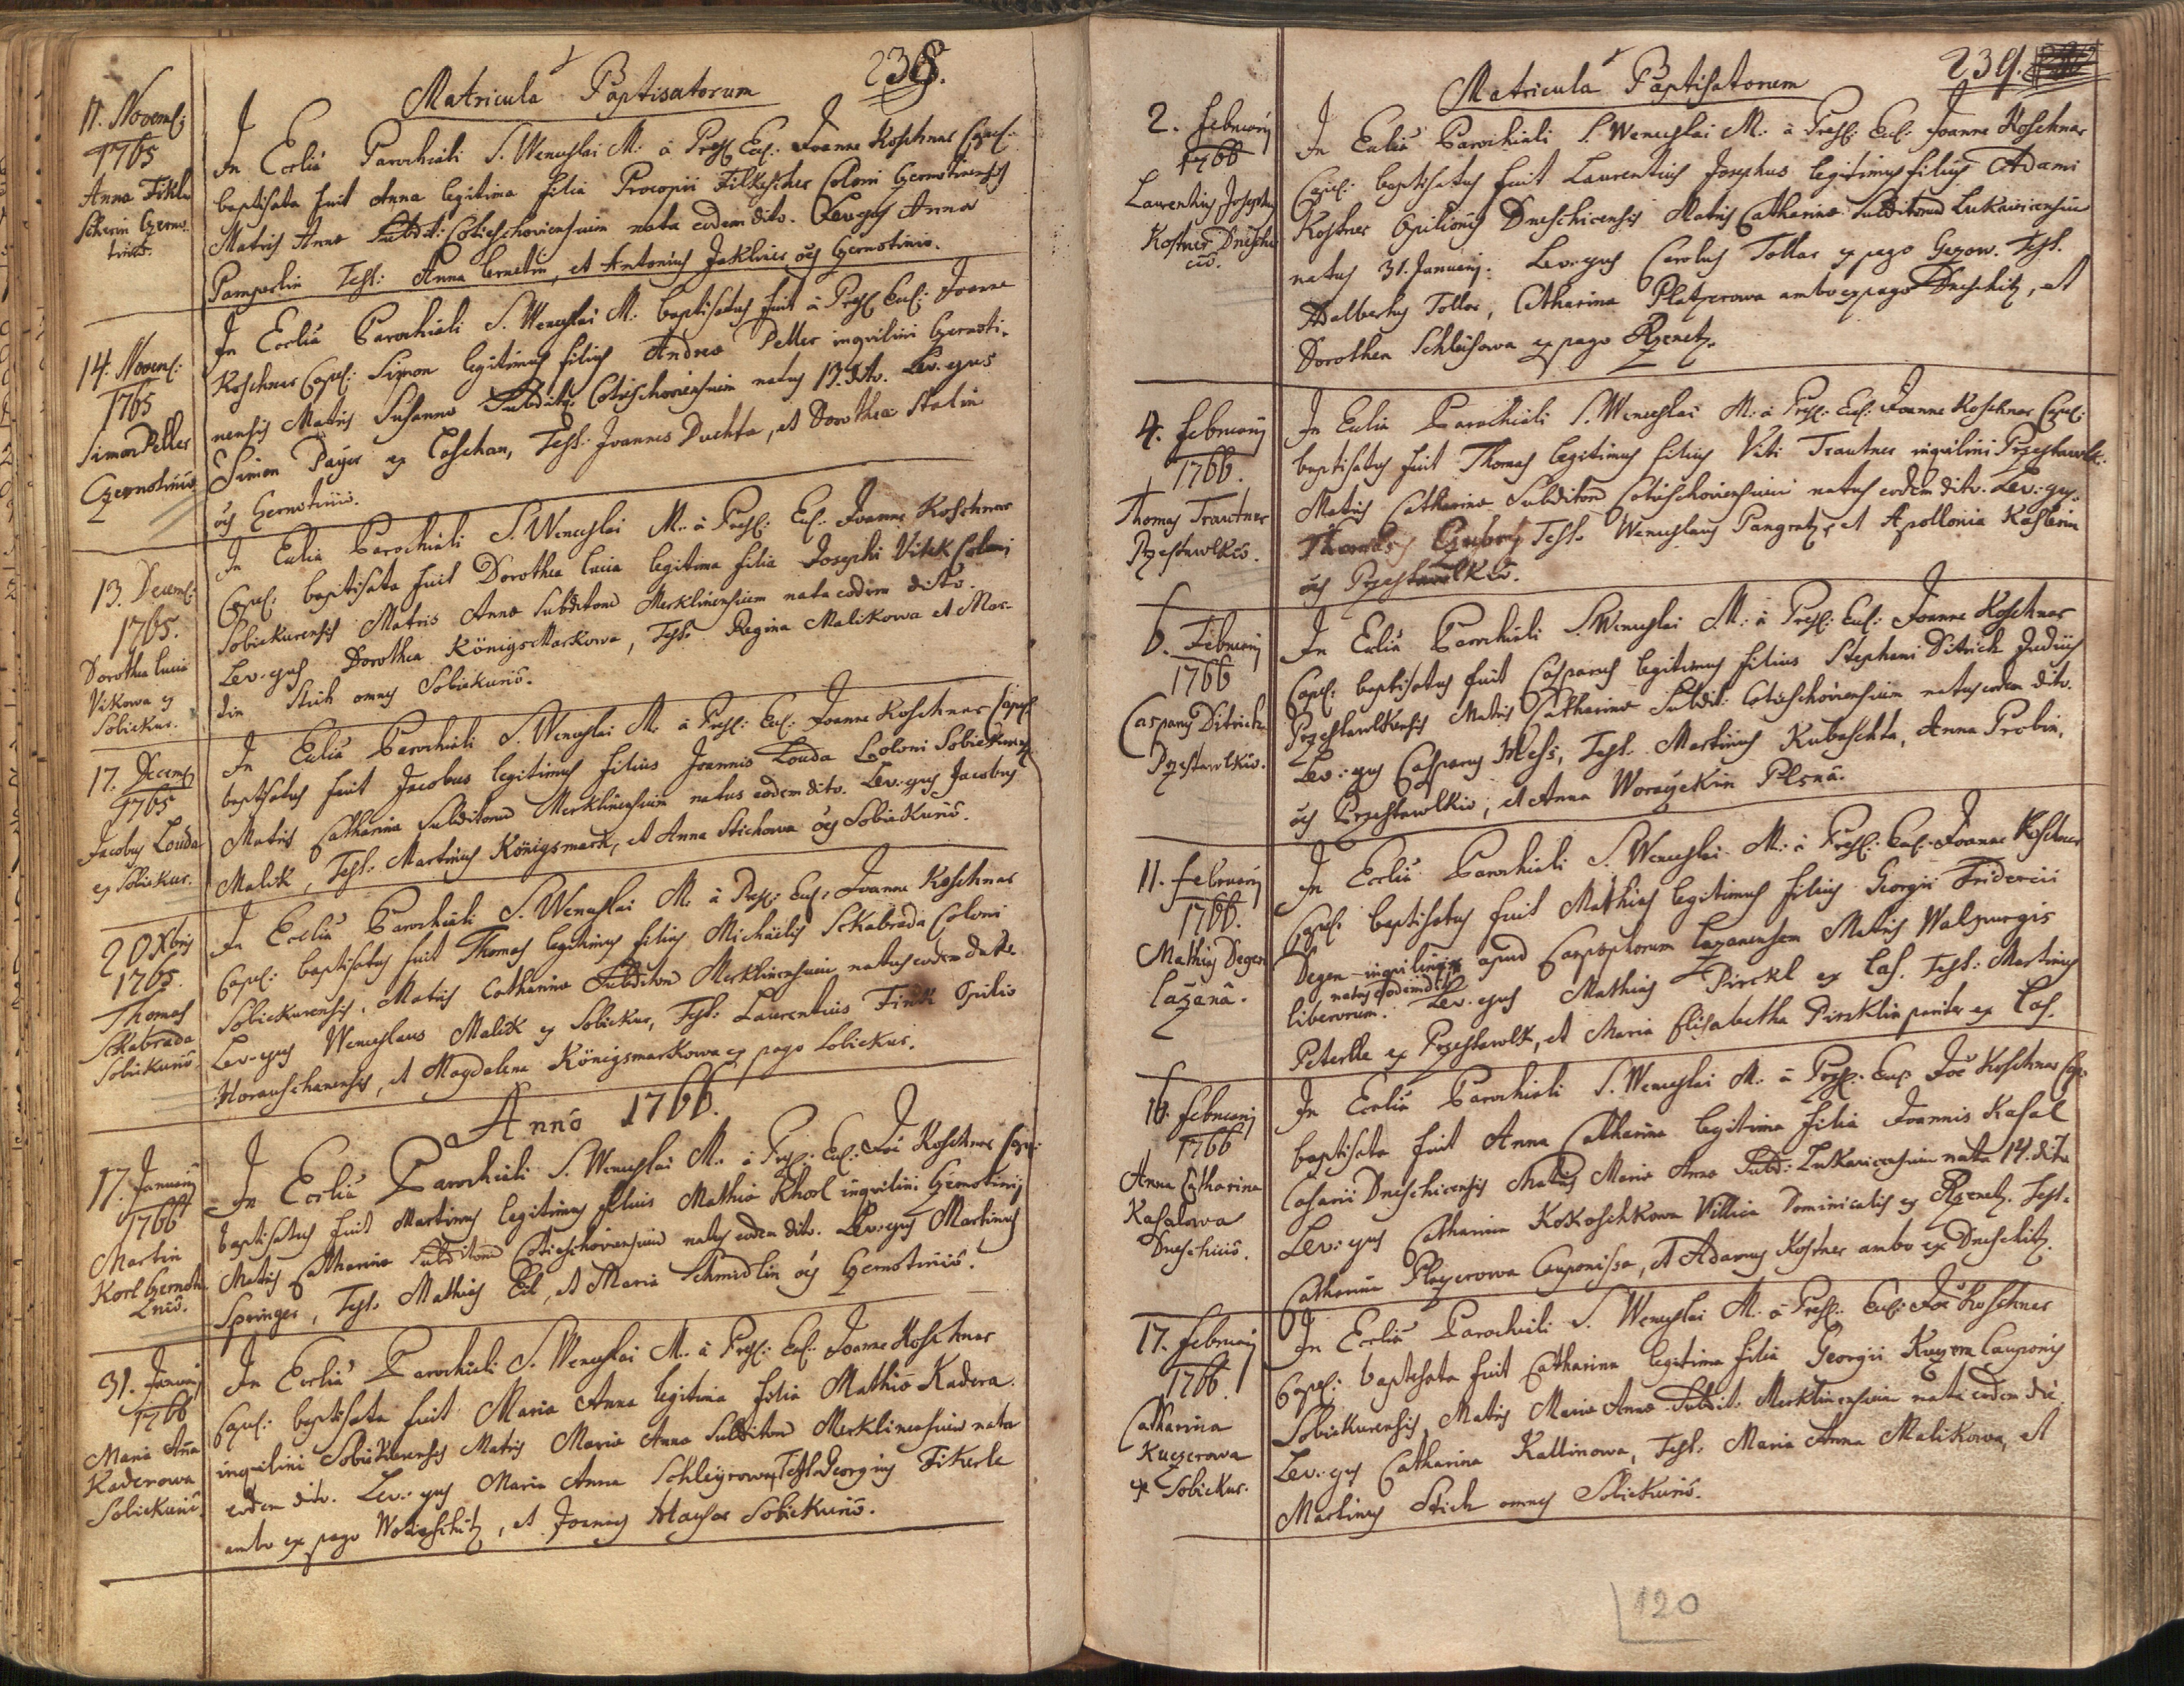 Matricula Baptisatorum 238.
11. Novemb:
1765
Anna Fikl
scherin Czerno
tinio.
In Ecclia Parochiali S. Wenceslai M. à Presb: Eccl: Joanne Koschner Capel:
baptisata fuit Anna legitima filia Procopii Filkescher Coloni Czernotinensis
Matris Annae Subdit: Cotieschoviensium nata eodem dito. Lev: ejus Anna
Pamperlin Test: Anna Ernetin, et Antonius Jakliner oēs Czernotinio.
14. Novem:
1765
Simon Peller
Czernotinio
In Ecclia Parochiali S. Wenceslai M. baptisatus fuit à Presb: Eccl: Joanne
Koschner Capel: Simon legitimus filius Andreae Peller inquilini Czernoti-
nensis Matris Susannae Subdit: Cotieschoviensium natus 13. dito. Lev. ejus
Simon Payer ex Loschan, Test. Joannes Duchta, et Dorothea Stalin
oēs Czernotinio.
13. Decemb:
1765.
Dorothea Lucia
Vikowa ex
Sobiekur.
In Ecclia Parochiali S. Wenceslai M. à Presb: Eccl. Joanne Koschner
Capel: baptisata fuit Dorothea Lucia legitima filia Josephi Vitek Coloni
Sobiekurensis Matris Annae Subditorū Merklinensium nata eodem dito.
Lev. ejus Dorothea Königsmarkowa, Test. Regina Malikowa et Mar-
tin Stich omnes Sobiekurio.
17. Decemb
1765
Jacobus Louda
ex Sobiekur.
In Ecclia Parochiali S. Wenceslai M. à Presb: Eccl: Joanne Koschner Capel
baptisatus fuit Jacobus legitimus filius Joannis Louda Coloni Sobiekurens
Matris Catharina Subditorum Merklinensium natus eodem dito. Lev: ejus Jacobus
Malik, Test: Martinus Königsmark, et Anna Stichowa oēs Sobiekurio.
20 Xbris
1765.
Thomas
Skabrada
Sobiekurio.
In Ecclia Parochiali S. Wenceslai M. à Presb: Eccl: Joanne Koschner
Capel: baptisatus fuit Thomas legitimus filius Michaelis Skabrada Coloni
Sobiekurensis, Matris Catharinae Subditorū Merklinensium, natus eodem dato.
Lev: ejus Wenceslaus Malik ex Sobiekur, Test: Laurentius Finik Opilio
Horauschanensis, et Magdalena Königsmarkowa ex pago Sobiekur.
Anno 1766.
17. Januarij
1766
Martin
Korl Czernoti
Znio.
In Ecclia Parochiali S. Wenceslai M. à Presb: Eccl: Joē Koschner Cape:
baptisatus fuit Martinus legitimus filius Mathiae Khorl inquilini Czernotinij
Matris Catharinae Subditorū Cotieschoviensium natus eodem dito. Lev: ejus Martinus
Springer, Test. Mathias Eil, et Maria Schmidlin oēs Czernotinio.
31. Januarij
1766
Maria Aña
Kaderowa
Sobiekurio.
In Ecclia Parochiali S. Wenceslai M. à Presb: Eccl. Joanne Koschner
Capel: baptisata fuit Maria Anna legitima filia Mathiae Kadera.
inquilini Sobiekurensis Matris Mariae Annae Subditorū Merklinensium nata
eodem dito. Lev: ejus Maria Anna Schleyrowa, Test. Georgius Fikerle
ambo ex pago Wotieschitz, et Joannes Hauser Sobiekurio.
Matricula Baptisatorum 239.
2. Februarij
1766
Laurentius Josephus
Kostner Dnesche
cio.
In Ecclia Parochiali S. Wenceslai M: à Presb: Eccl: Joanne Koschner
Capel: baptisatus fuit Laurentius Josephus legitimus filius Adami
Kostner Opilionis Dneschicensis Matris Catharinae Subditorū Lukavicensium
natus 31. Januarij. Lev: ejus Carolus Tollar ex pago Gezow. Test.
Adalbertus Tollar, Catharina Platzerowa ambo ex pago Dneschitz, et
Dorothea Schleisowa ex pago Rzenetz.
4. Februarij
1766.
Thomas Trautner
Przestawlkio.
In Ecclia Parochiali S. Wenceslai M. à Presb: Eccl: Joanne Koschner Capel:
baptisatus fuit Thomas legitimus filius Viti Trautner inquilini Przestawlk:
Matris Catharinae Subditorū Cotieschoviensium natus eodem dito. Lev: ejus
Thomas Test. Wenceslaus Pangratz, et Apollonia Kasslerin
oēs Przestawlkio.
6. Februarij
1766
Casparus Ditrich
Przestawlkio.
In Ecclia Parochiali S. Wenceslai M: à Presb: Eccl: Joanne Koschner
Capel: baptisatus fuit Casparus legitimus filius Stephani Ditrich Judicis
Przestawlkensis Matris Catharinae Subdit: Cotieschoviensium natus eodem dito.
Lev: ejus Casparus Hess, Test. Martinus Kubaschta, Anna Probin,
oēs Przestawlkio, et Anna Woraczkin Plsnā.
11. Februarij
1766.
Mathias Degen
Lazanā.
In Ecclia Parochiali S. Wenceslai M: à Presb: Eccl: Joanne Koschner
Capel: baptisatus fuit Mathias legitimus filius Georgii Friderici
Degen inquilini apud Lazanensem Matris Walpurgis
natus eodem dito
liberorum. Lev: ejus Mathias Pirckl ex Las. Test: Martinus
Peterlle ex Przestawlk, et Maria Elisabetha Pirzklin pariter ex Las.
16. Februarij
1766
Anna Catharina
Kasalowa
Dneschicio.
In Ecclia Parochiali S. Wenceslai M. à Presb: Eccl: Joē Koschner Cap:
baptisata fuit Anna Catharina legitima filia Joannis Kasal
Casarii Dneschicensis Matris Mariae Annae Subd: Lukavicensium nata 14. dito
Lev: ejus Catharina Kokoschkowa Villica Dominicalis ex Rzenetz. Test.
Catharina Plazerowa Cauponissa, et Adamus Kostner ambo ex Dneschitz.
17. Februarij
1766.
Catharina
Kuczerowa
ex Sobiekur.
In Ecclia Parochiali S. Wenceslai M. à Presb: Eccl: Joē Koschner
Capel: baptisata fuit Catharina legitima filia Georgii Kuczera Cauponis
Sobiekurensis, Matris Mariae Annae Subdit: Merklinensium nata eodem die
Lev: ejus Catharina Kallinowa, Test. Maria Anna Malikowa, et
Martinus Stich omnes Sobiekurio.
120